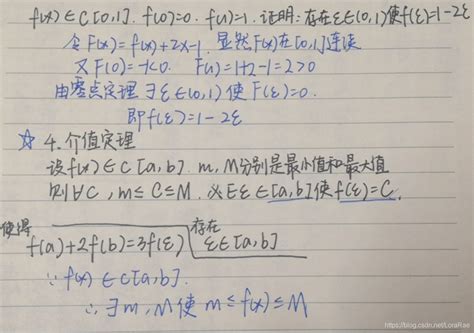 f(x)∈C[0,1]. f(0)=0. f(1)=1. 证明:存在ξ∈(0,1)使f(ξ)=1-2ξ
令F(x)=f(x)+2x-1. 显然F(x)在[0,1]连续
又F(0)=-1<0. F(1)=1+2-1=2>0
由零点定理 ∃ξ∈(0,1) 使F(ξ)=0.
即f(ξ)=1-2ξ
☆ 4. 介值定理
设f(x)∈C[a,b]. m, M分别是最小值和最大值
则∀C, m≤C≤M. 必∃ξ∈[a,b]使f(ξ)=C.
使得 f(a)+2f(b)=3f(ξ) 存在 ξ∈[a,b]
∵f(x)∈C[a,b].
∴∃m, M使m≤f(x)≤M
https://blog.csdn.net/LoraRae